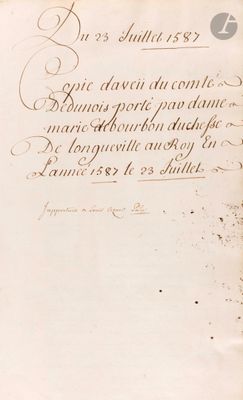 Du 23 Juillet 1587
Copie daveü du comté
Dedunois porté par dame
marie debourbon duchesse
De longueville au Roy En
L'année 1587 le 23 Juillet
J'appartiens a Louis